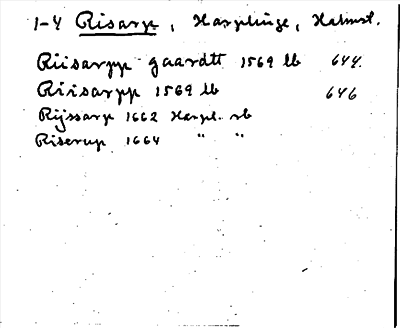 1-4 Risarp, Harplinge, Halmst.
Riisarpp gaardtt 1569 lb 644.
Riisarpp 1569 lb 646
Rijssarp 1662 Harpl. sb
Riserup 1664 " "